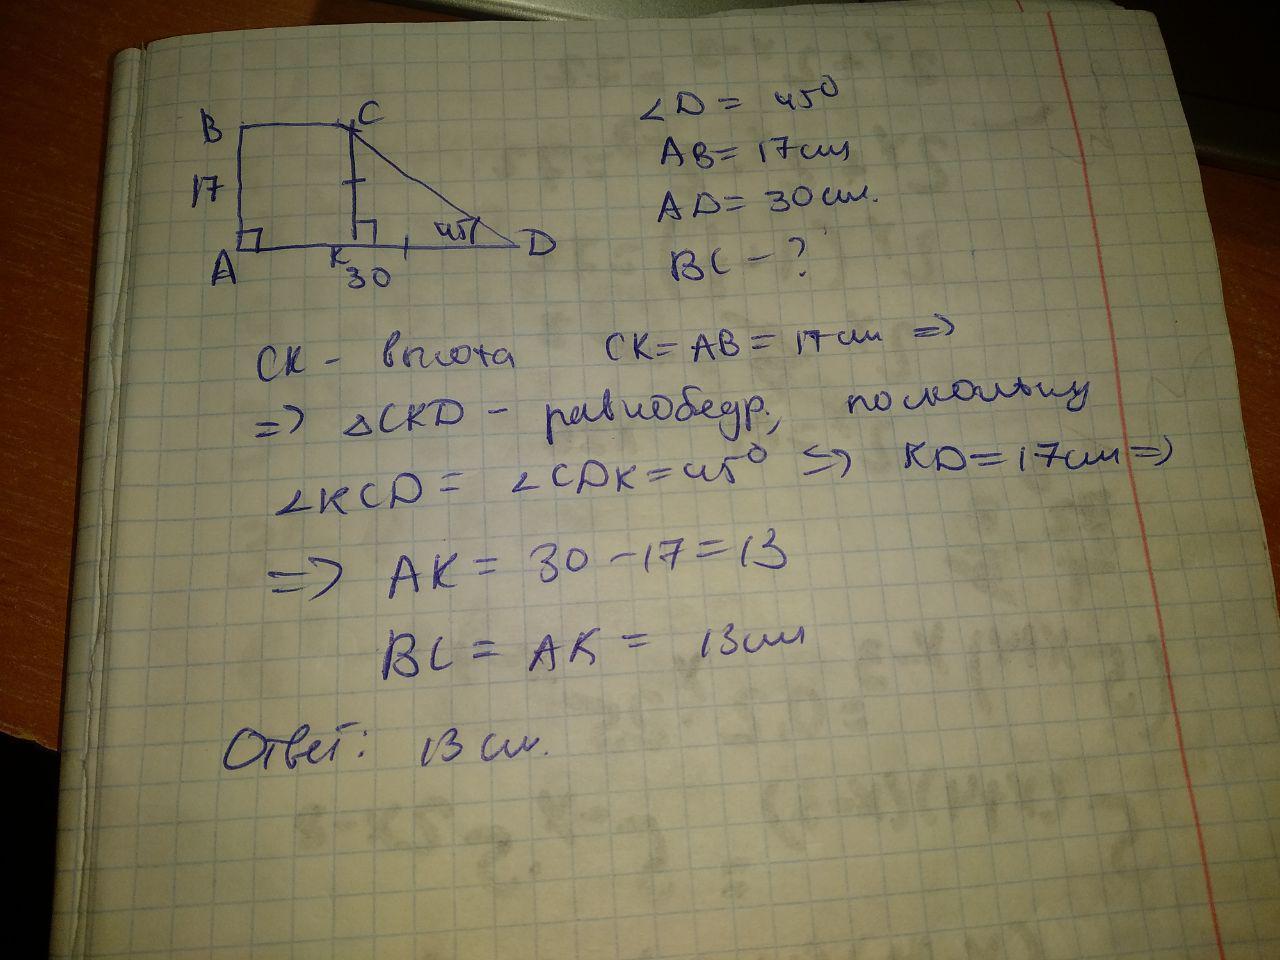 B
C
17
45
A
K
D
30
∠D = 45⁰
AB = 17см
AD = 30см.
BC - ?
CK - высота CK = AB = 17см =>
=> △CKD - равнобедр., поскольку
∠KCD = ∠CDK = 45⁰ => KD = 17см =>
=> AK = 30 - 17 = 13
BC = AK = 13см
Ответ: 13 см.